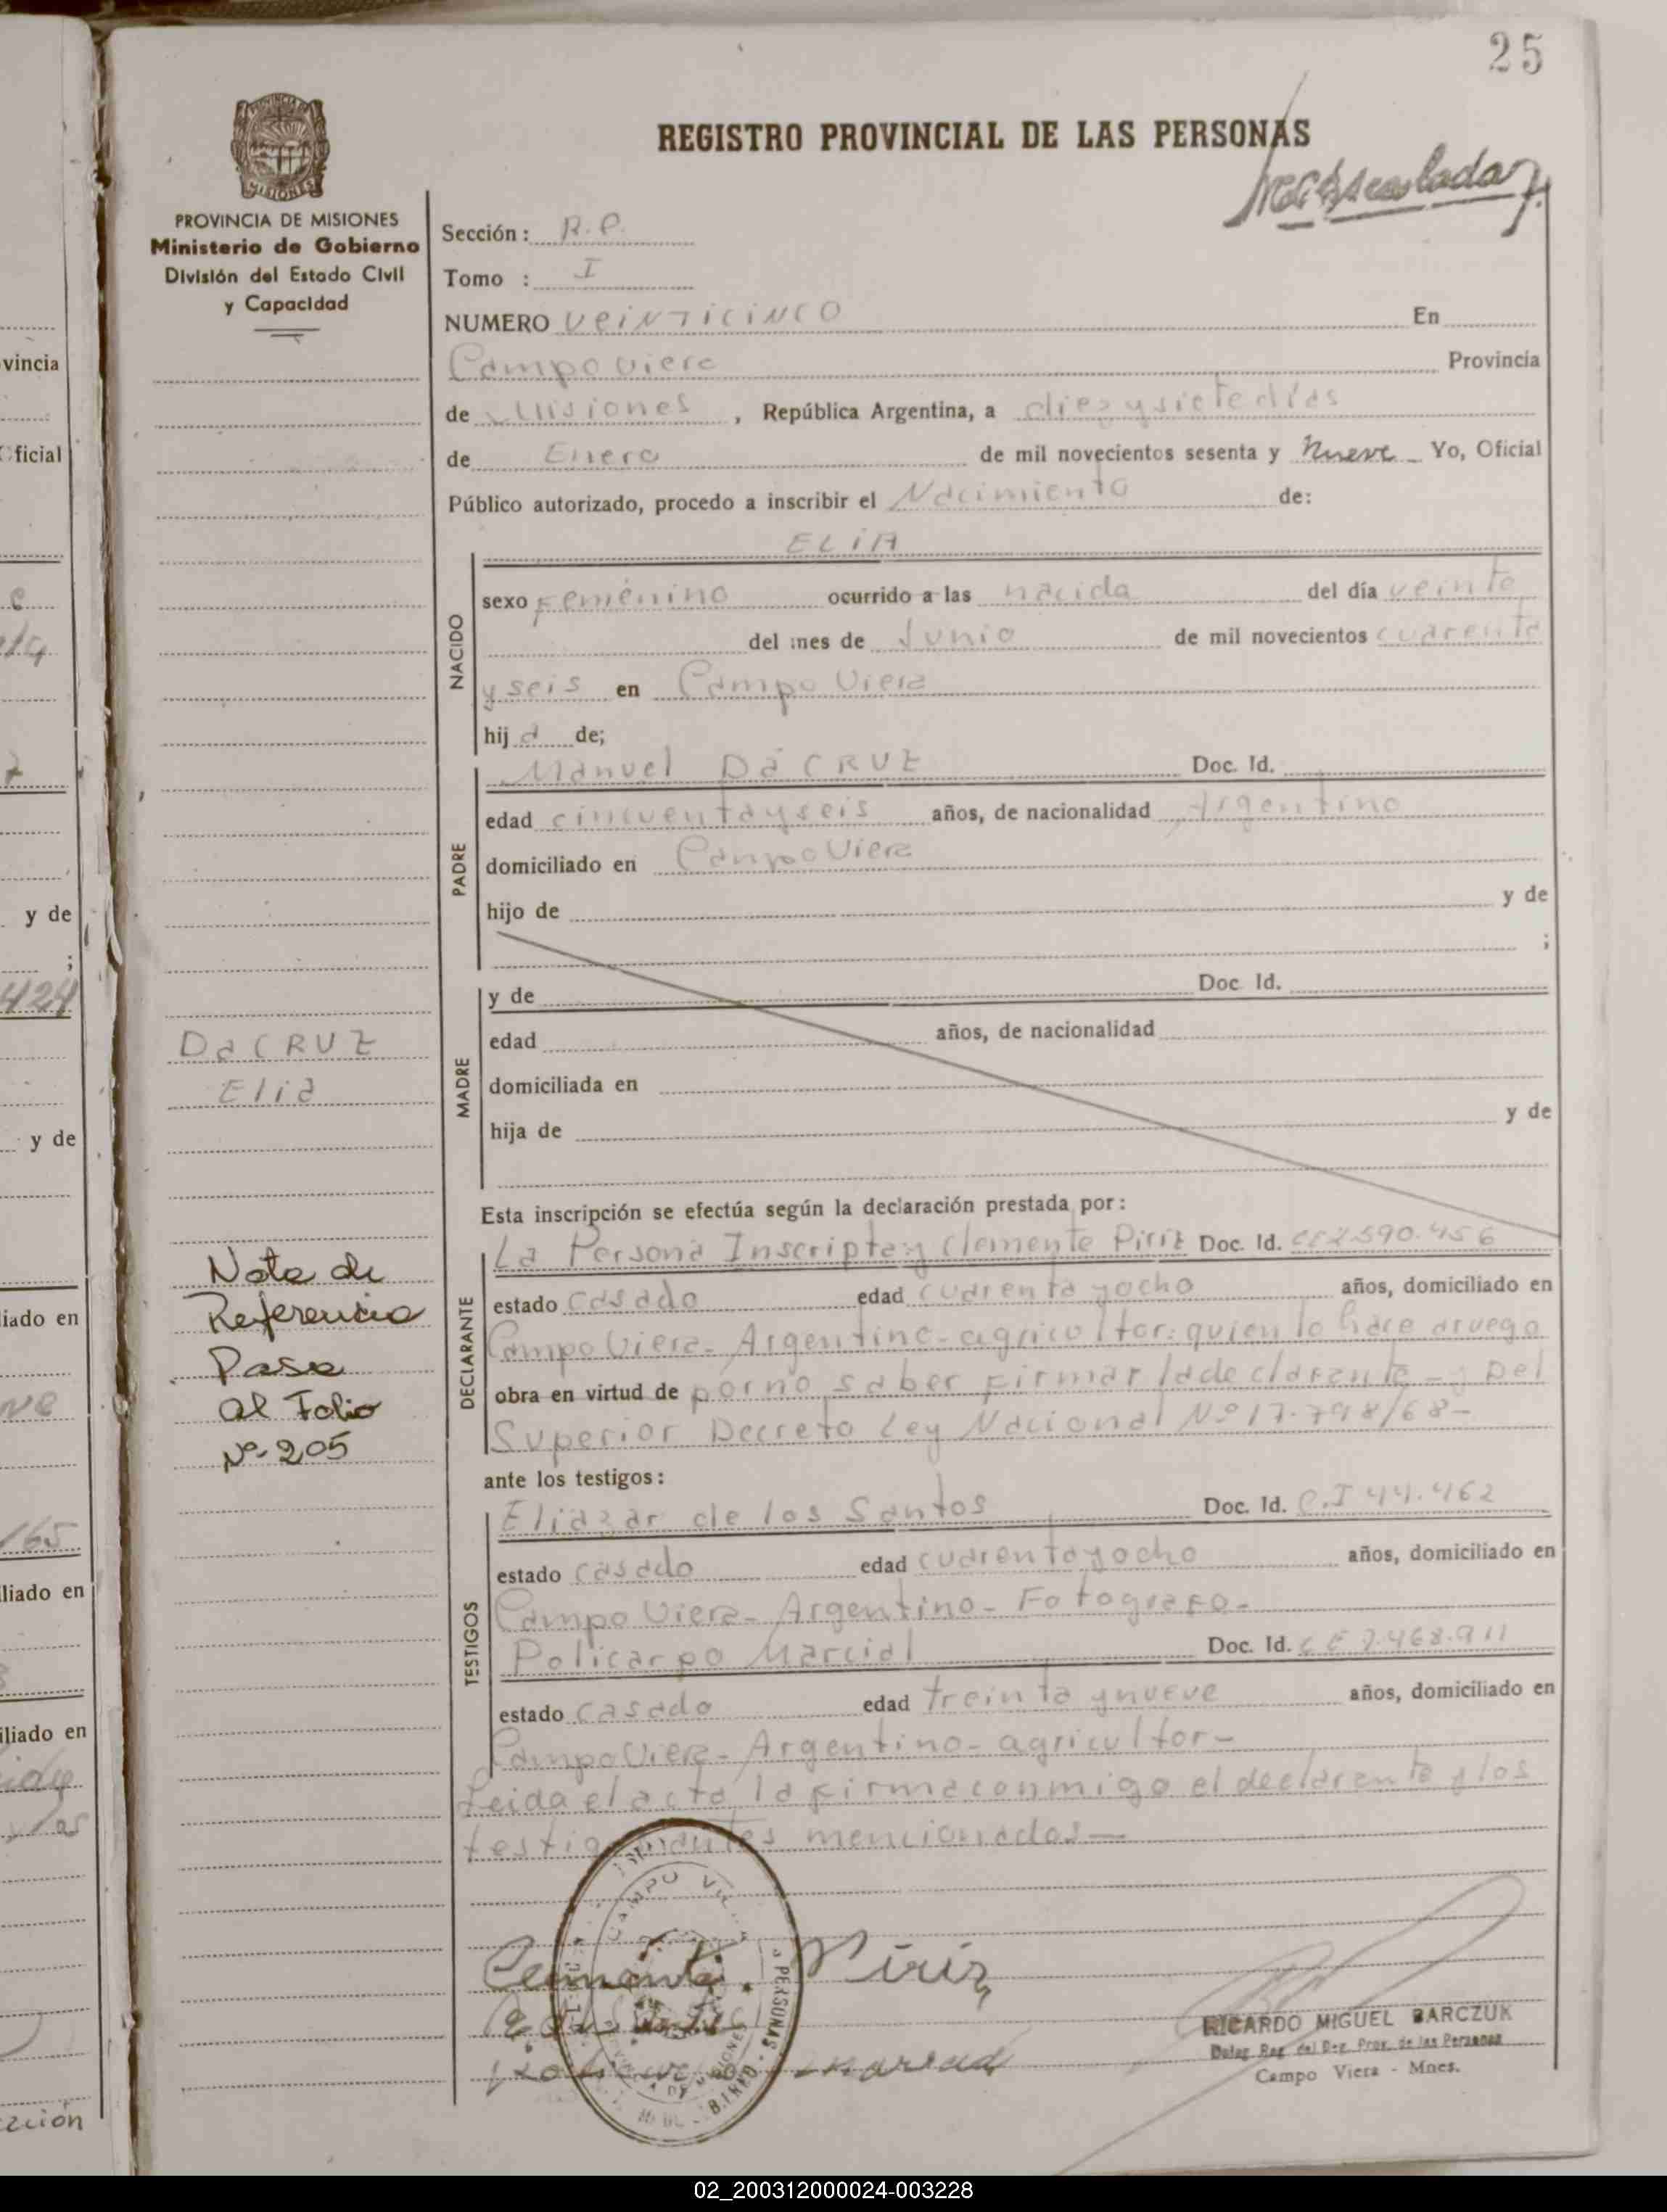 25
REGISTRO PROVINCIAL DE LAS PERSONAS
PROVINCIA DE MISIONES
Ministerio de Gobierno
División del Estado Civil
y Capacidad
Sección: R.P.
Tomo : I
NUMERO veinticinco En
Campo Viera Provincia
de Misiones, República Argentina, a diez y siete días
de Enero de mil novecientos sesenta y nueve Yo, Oficial
Público autorizado, procedo a inscribir el Nacimiento de:
ELiA
NACIDO
sexo Femenino ocurrido a las nacida del día veinte
del mes de Junio de mil novecientos cuarenta
y seis en Campo Viera
hija de;
PADRE
Manuel Da CRUZ Doc. Id.
edad cincuenta y seis años, de nacionalidad Argentino
domiciliado en Campo Viera
hijo de y de
;
MADRE
y de Doc. Id.
edad años, de nacionalidad
domiciliada en
hija de y de
Da CRUZ
Elia
Esta inscripción se efectúa según la declaración prestada por:
DECLARANTE
La Persona Inscripta y Clemente Piriz Doc. Id. 2.590.456
estado casado edad cuarenta y ocho años, domiciliado en
Campo Viera- Argentino- agricultor: quien lo hace a ruego
obra en virtud de por no saber firmar la declarante - y Del
Superior Decreto Ley Nacional Nº 17.798/68-
Nota de
Referencia
Pasa
al Folio
Nº 205
ante los testigos:
TESTIGOS
Eliazar de los Santos Doc. Id. C.I 44.462
estado casado edad cuarenta y ocho años, domiciliado en
Campo Viera- Argentino- Fotografo-
Policarpo Marcial Doc. Id. 2.468.911
estado casado edad treinta y nueve años, domiciliado en
Campo Viera- Argentino- agricultor-
Leida el acta la firma conmigo el declarante y los
testigos mencionados—
Clemente Piriz
RICARDO MIGUEL BARCZUK
Deleg. Reg. del Reg. Prov. de las Personas
Campo Viera - Mnes.
vincia
ficial
y de
;
424
y de
liado en
165
liado en
iliado en
02_200312000024-003228